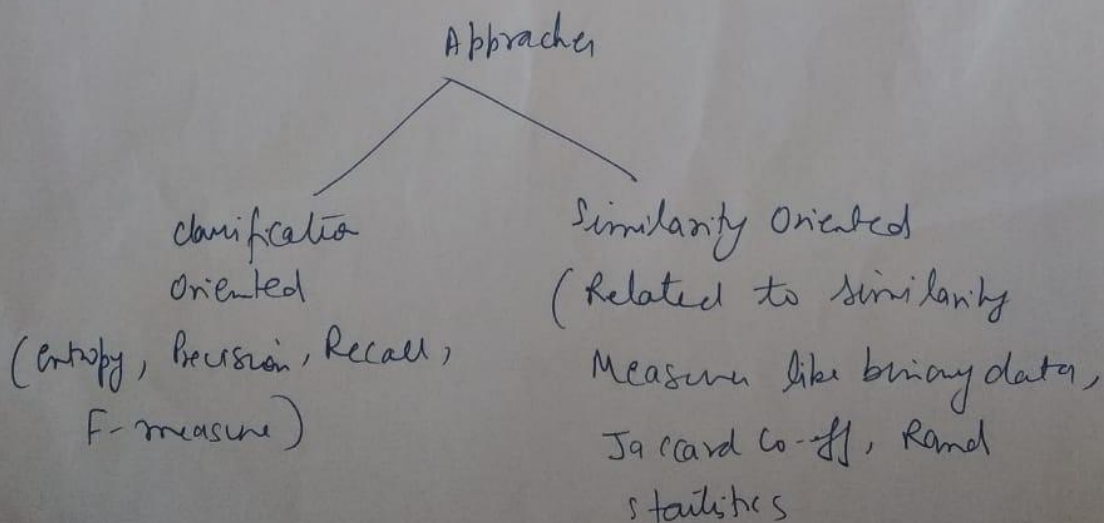 Appraches
Classification
Oriented
(entropy, Precision, Recall,
F-measure)
Similarity Oriented
(Related to similarity
Measures like binary data,
Jaccard Co-eff, Rand
statistics